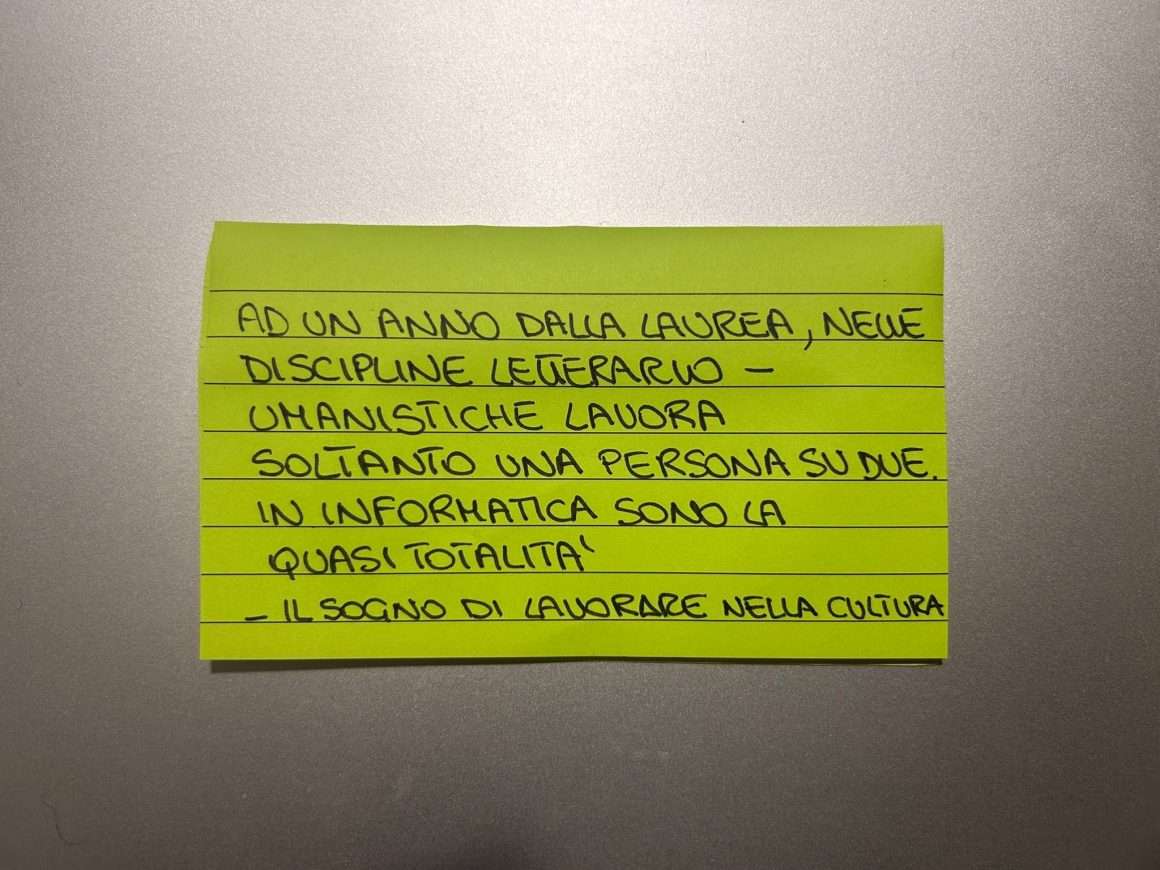 AD UN ANNO DALLA LAUREA, NELLE
DISCIPLINE LETTERARIO –
UMANISTICHE LAVORA
SOLTANTO UNA PERSONA SU DUE.
IN INFORMATICA SONO LA
QUASI TOTALITA'
– IL SOGNO DI LAVORARE NELLA CULTURA